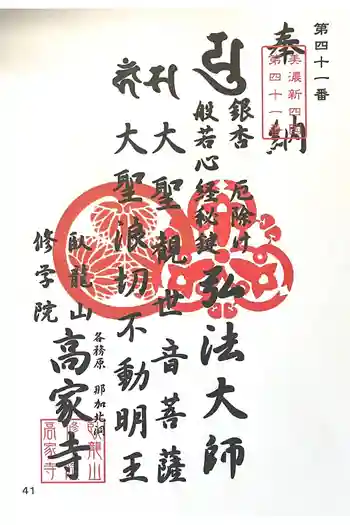 第四十一番
奉納
美濃新四国
第四十一番
銀杏 厄除け
般若心経秘鍵 弘法大師
大聖観世音菩薩
大聖浪切不動明王
各務原 那加北洞
臥龍山
修学院
高家寺
臥龍山
修学院
高家寺
41